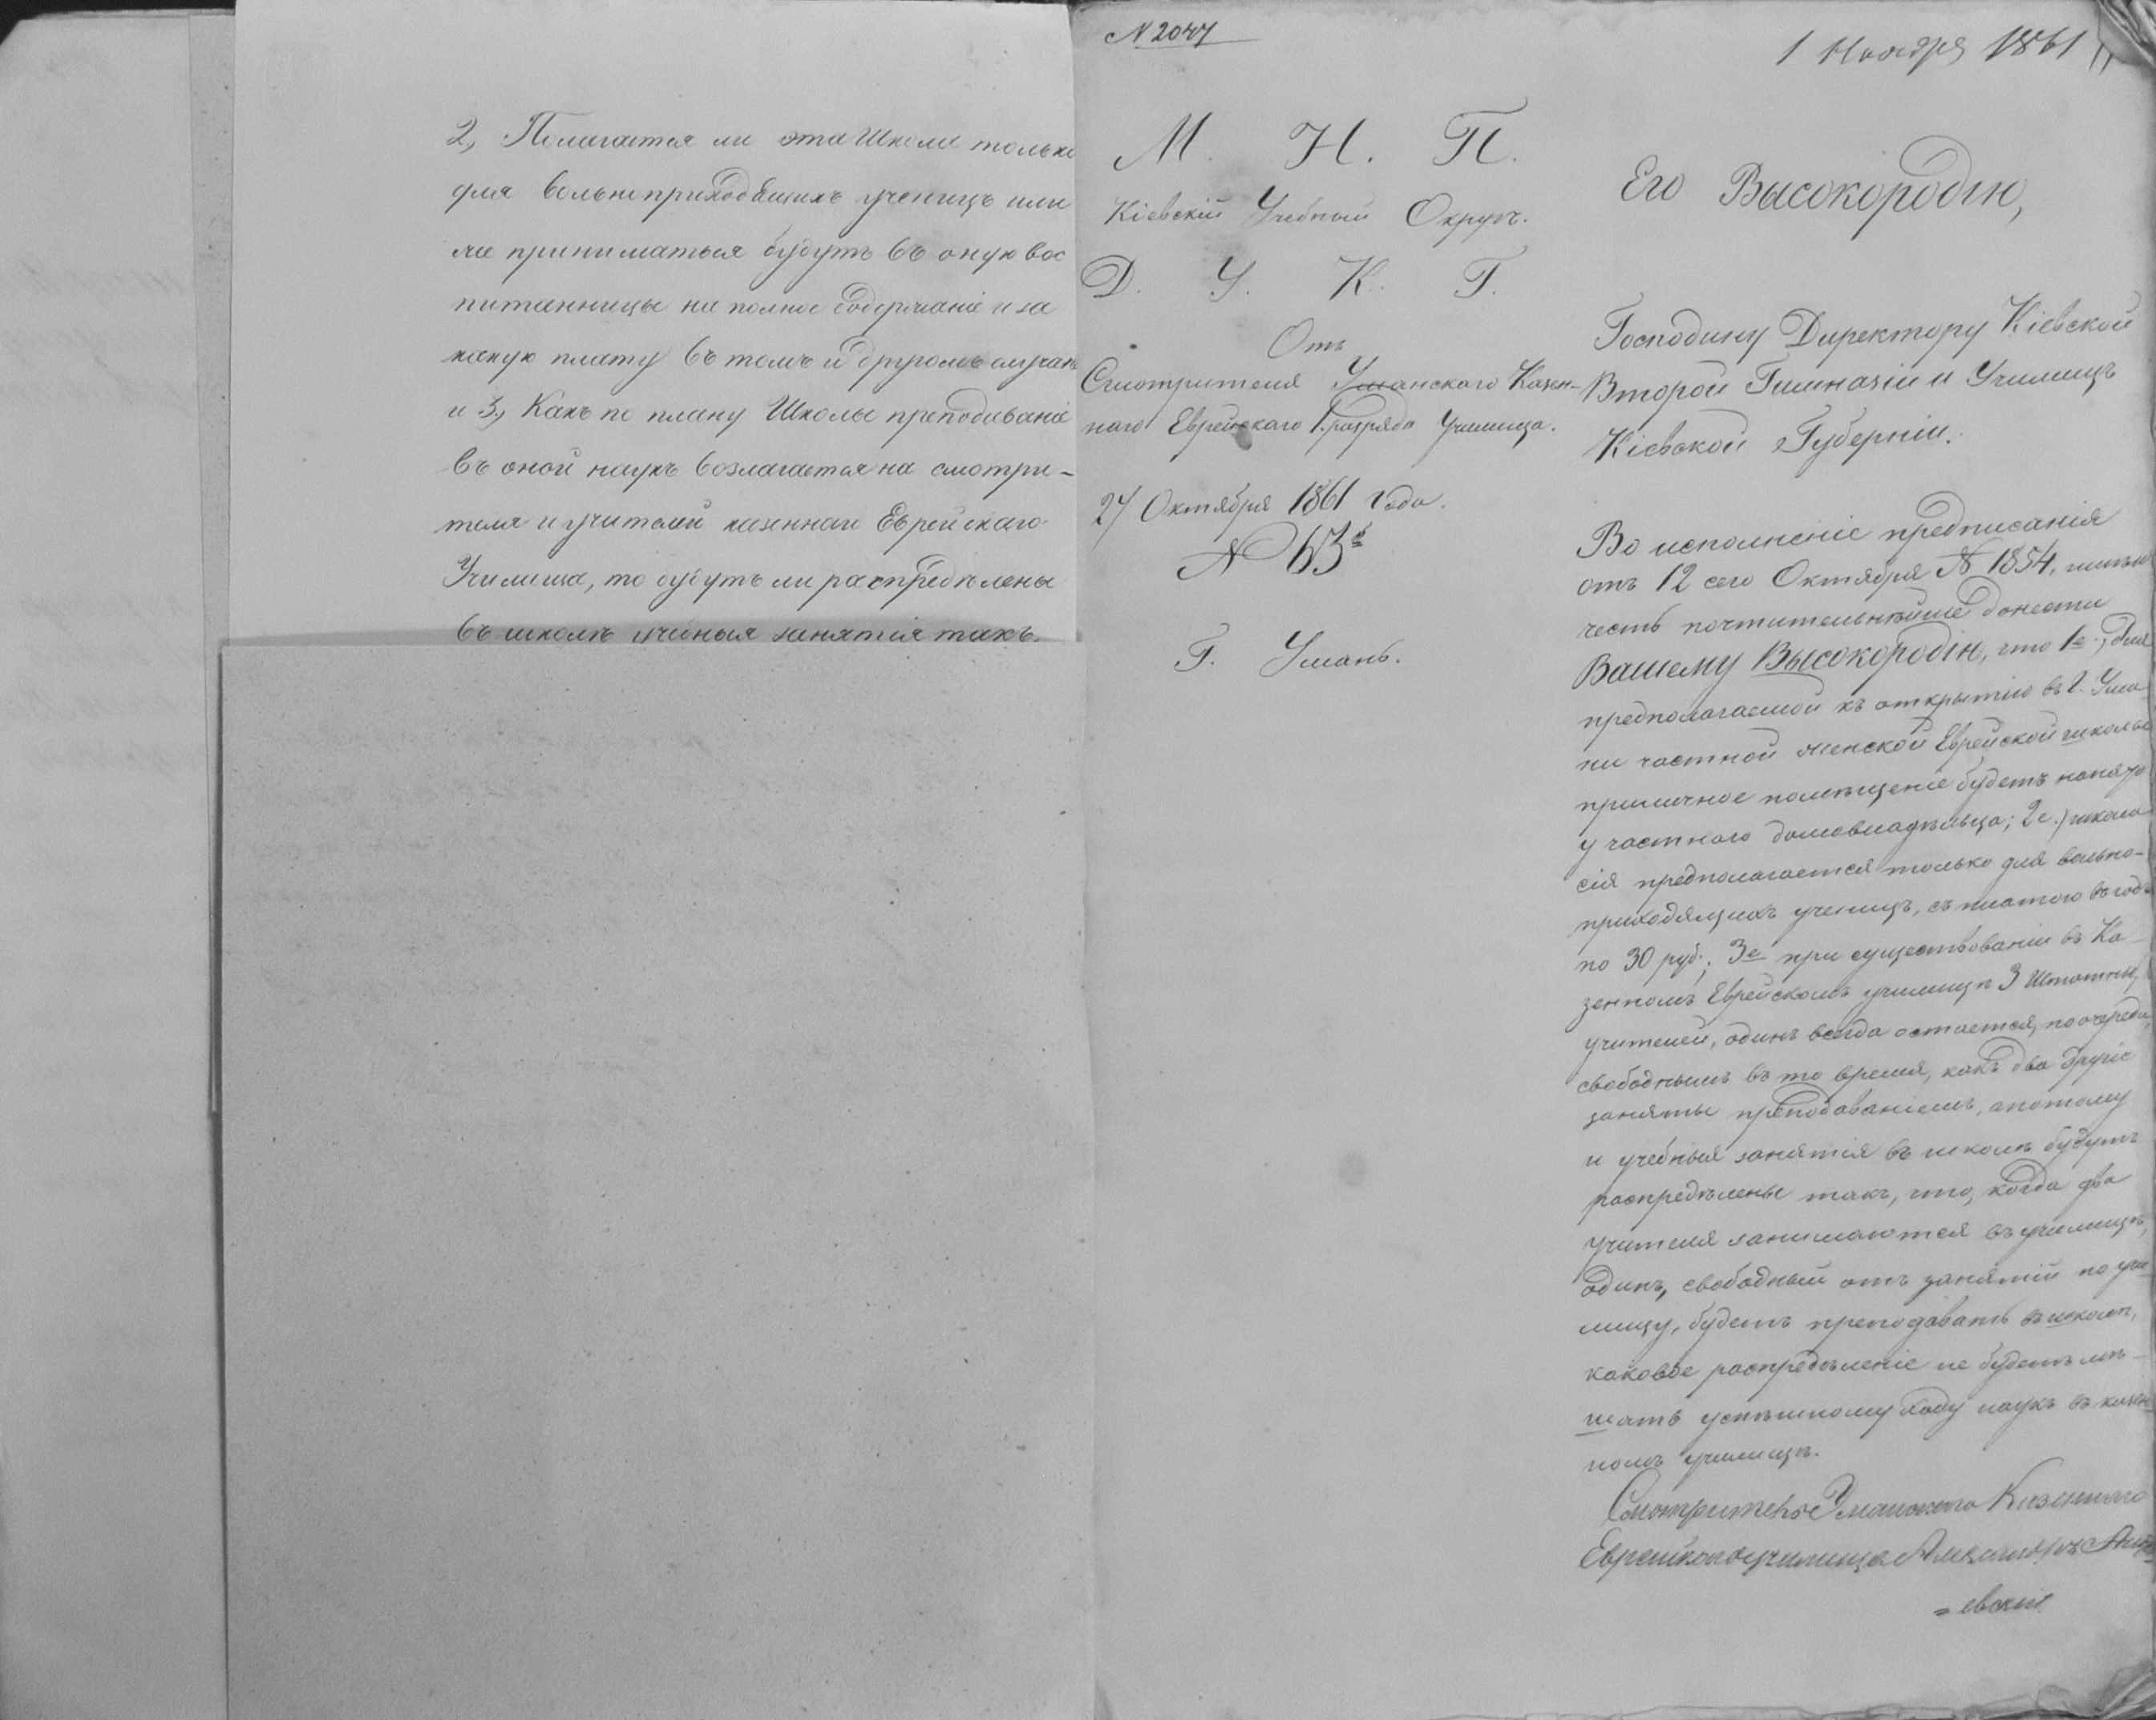 2, Полагается ли эта Школа только
для вольноприходящихъ ученицъ или
же приниматься будутъ въ оную вос
питанницы на полное содержаніе и за
какую плату въ томъ и другомъ случаѣ
и 3, Какъ по плану Школы преподаваніе
въ оной наукъ возлагается на смотри-
теля и учителей казеннаго Еврейскаго
Училища, то будутъ ли распредѣлены
въ школѣ учебныя занятія такъ.
N 2047
1 Ноября 1861
М. Н. П.
Кіевскій Учебный Округъ.
Д. У. К. Г.
Отъ
Смотрителя Уманскаго Казен-
наго Еврейскаго 1. разряда Училища.
27 Октября 1861 года.
N 63
Г. Умань.
Его Высокородію,
Господину Директору Кіевской
Второй Гимназіи и Училищъ
Кіевской Губерніи.
Во исполненіе предписанія
отъ 12 сего Октября № 1854, имѣю
честь почтительнѣйше донести
Вашему Высокородію, что 1е., для
предполагаемой къ открытію въ г. Ума
ни частной женской Еврейской школы
приличное помѣщеніе будетъ нанято
у частнаго домовладѣльца; 2е.) школа
сія предполагается только для вольно-
приходящихъ ученицъ, съ платою въ годъ
по 30 руб.; 3е при существованіи въ Ка-
зенномъ Еврейскомъ училищѣ 3 Штатныхъ
учителей, одинъ всегда остается, по очереди,
свободнымъ въ то время, какъ два другіе
заняты преподаваніемъ, а потому
и учебныя занятія въ школѣ будутъ
распредѣлены такъ, что, когда два
учителя занимаются въ училищѣ,
одинъ, свободный отъ занятій по учи
лищу, будетъ преподавать въ школѣ,
каковое распредѣленіе не будетъ мѣ-
шать успѣшному ходу наукъ въ казен-
номъ училищѣ.
Смотритель Уманскаго Казеннаго
Еврейскаго училища Александръ
=евскій